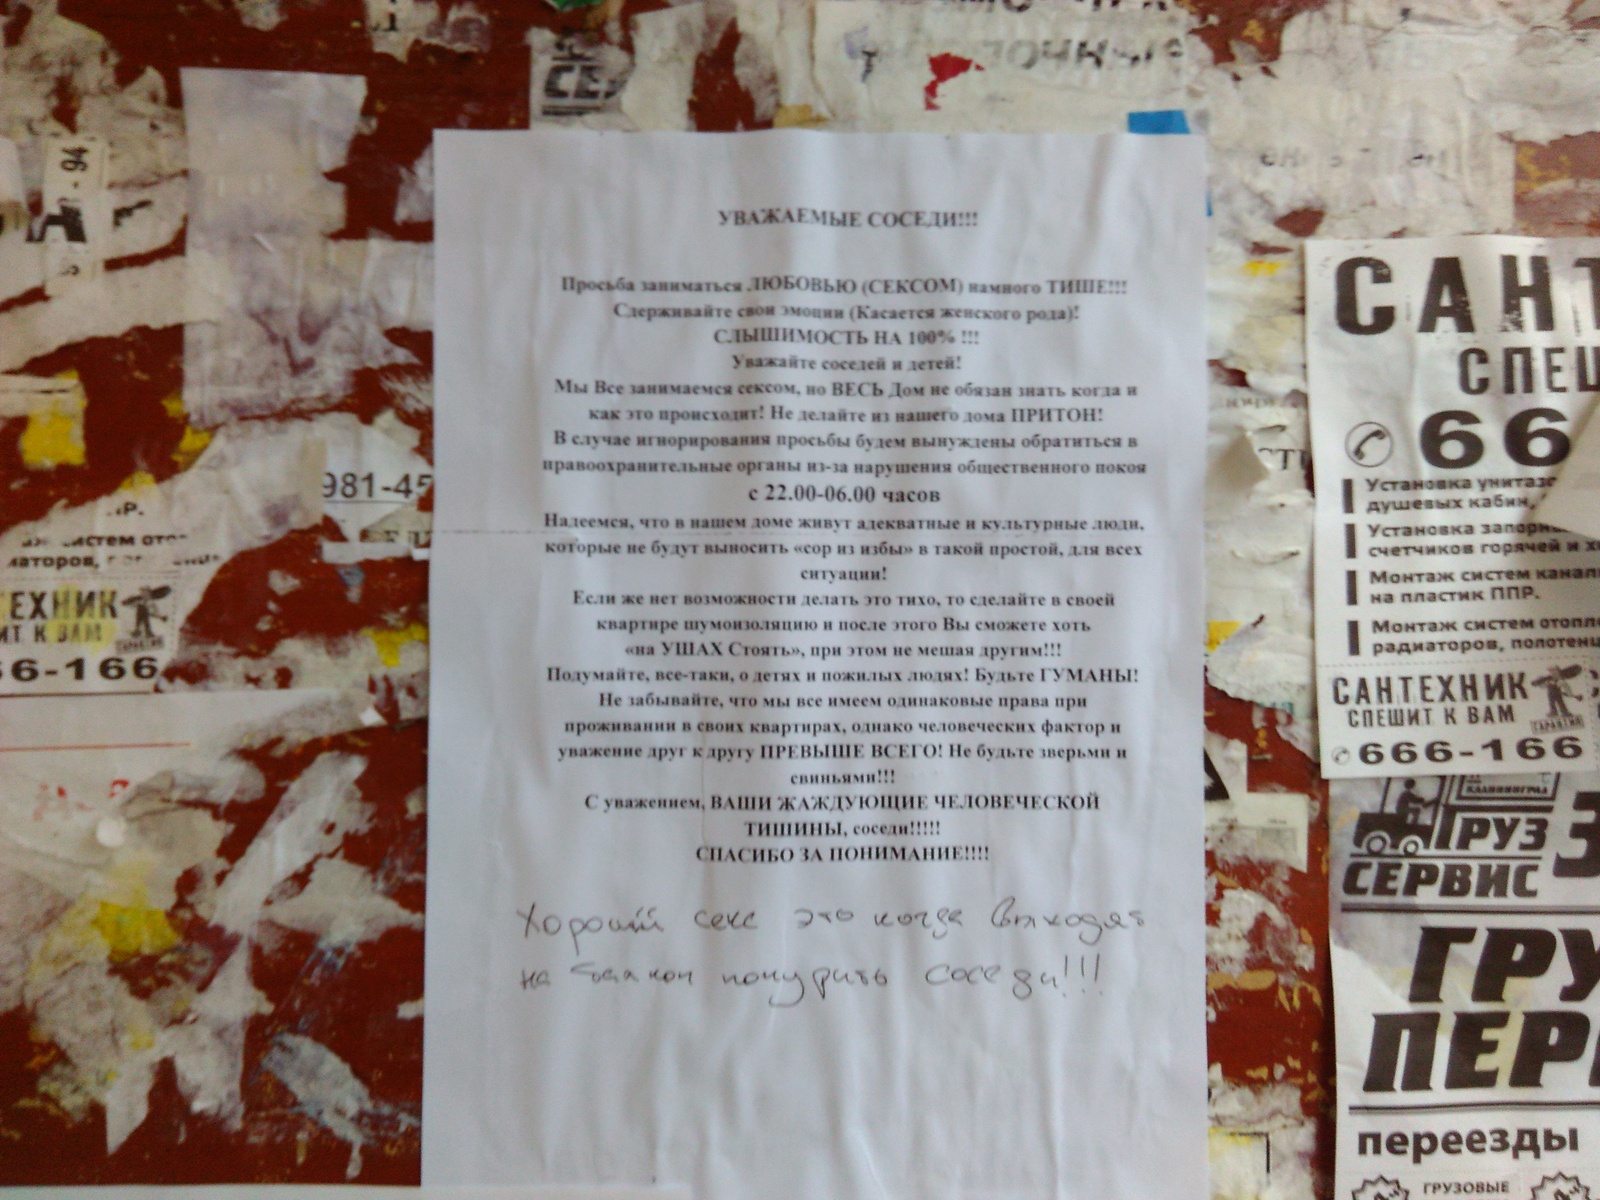 УВАЖАЕМЫЕ СОСЕДИ!!!
Просьба заниматься ЛЮБОВЬЮ (СЕКСОМ) намного ТИШЕ!!!
Сдерживайте свои эмоции (Касается женского рода)!
СЛЫШИМОСТЬ НА 100% !!!
Уважайте соседей и детей!
Мы Все занимаемся сексом, но ВЕСЬ Дом не обязан знать когда и
как это происходит! Не делайте из нашего дома ПРИТОН!
В случае игнорирования просьбы будем вынуждены обратиться в
правоохранительные органы из-за нарушения общественного покоя
с 22.00-06.00 часов
Надеемся, что в нашем доме живут адекватные и культурные люди,
которые не будут выносить «сор из избы» в такой простой, для всех
ситуации!
Если же нет возможности делать это тихо, то сделайте в своей
квартире шумоизоляцию и после этого Вы сможете хоть
«на УШАХ Стоять», при этом не мешая другим!!!
Подумайте, все-таки, о детях и пожилых людях! Будьте ГУМАНЫ!
Не забывайте, что мы все имеем одинаковые права при
проживании в своих квартирах, однако человеческих фактор и
уважение друг к другу ПРЕВЫШЕ ВСЕГО! Не будьте зверьми и
свиньями!!!
С уважением, ВАШИ ЖАЖДУЮЩИЕ ЧЕЛОВЕЧЕСКОЙ
ТИШИНЫ, соседи!!!!!
СПАСИБО ЗА ПОНИМАНИЕ!!!!
Хороший секс это когда выходят
на балкон покурить соседи!!!
981-45
ЕХНИК
ИТ К ВАМ
66-166
САНТ
СПЕШ
66
Установка унитазо
душевых кабин,
Установка запорн
счетчиков горячей и х
Монтаж систем канал
на пластик ППР.
Монтаж систем отопл
радиаторов, полотенц
САНТЕХНИК
СПЕШИТ К ВАМ
ГАРАНТИЯ
666-166
КАЛИНИНГРАД
ГРУЗ
СЕРВИС
3
ГРУ
ПЕР
переезды
ГРУЗОВЫЕ